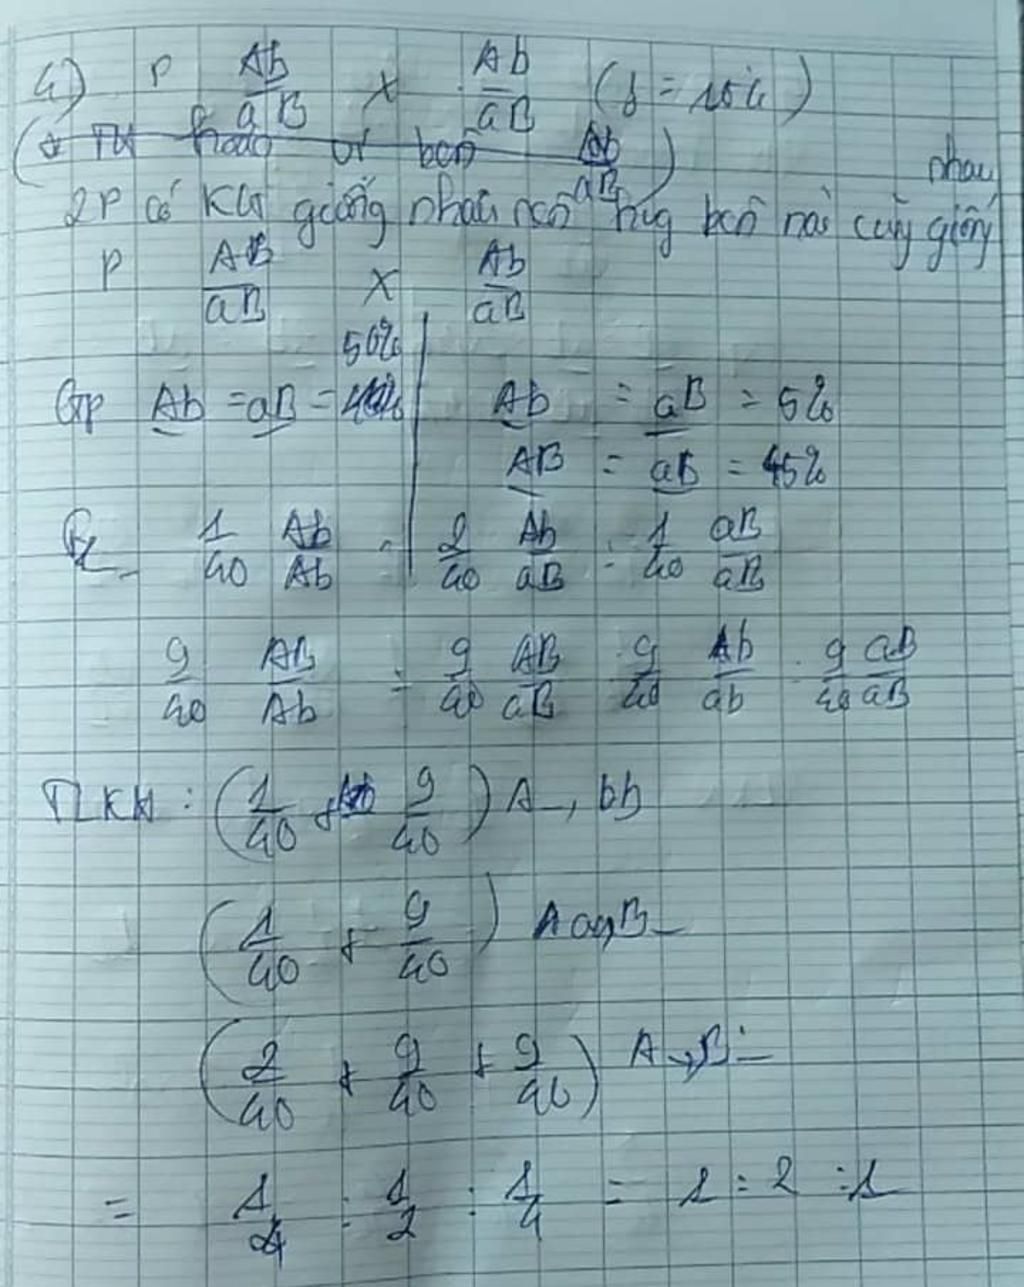 4) P Ab/aB × Ab/aB (f = 10%)
( TH hoán bên Ab/aB )
2P có KH giống nhau nên bên nào cũng giống nhau
P AB/aB × Ab/aB
50%
Gp Ab = aB = | Ab = aB = 5%
AB = aB = 45%
1/40 Ab/Ab : 2/40 Ab/aB : 1/40 aB/aB
9/40 AB/Ab : 9/40 AB/aB : 9/40 Ab/ab : 9/40 aB/aB
TLKH : (1/40 + 9/40) A_, bb
(1/40 + 9/40) aa,B_
(2/40 + 9/40 + 9/40) A_,B_
= 1/4 : 1/2 : 1/4 = 1 : 2 : 1